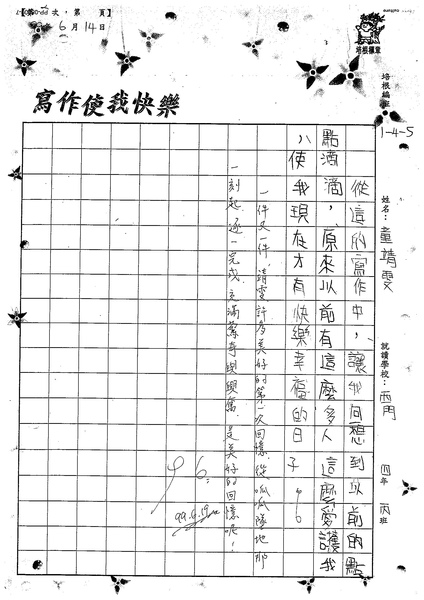 6月14日
培根編班
1-4-5
寫作使我快樂
姓名：童靖雯
就讀學校：西門
四年丙班
從這的寫作中，讓我回想到以前的點
點滴滴，原來以前有這麼多人這麼愛護我
，使我現在才有快樂幸福的日子
96
一件又一件，靖雯許多美好的第一次回憶，從呱呱墜地那
一刻起，逐一完成，充滿驚奇與興奮，是美好的回憶呢！
96